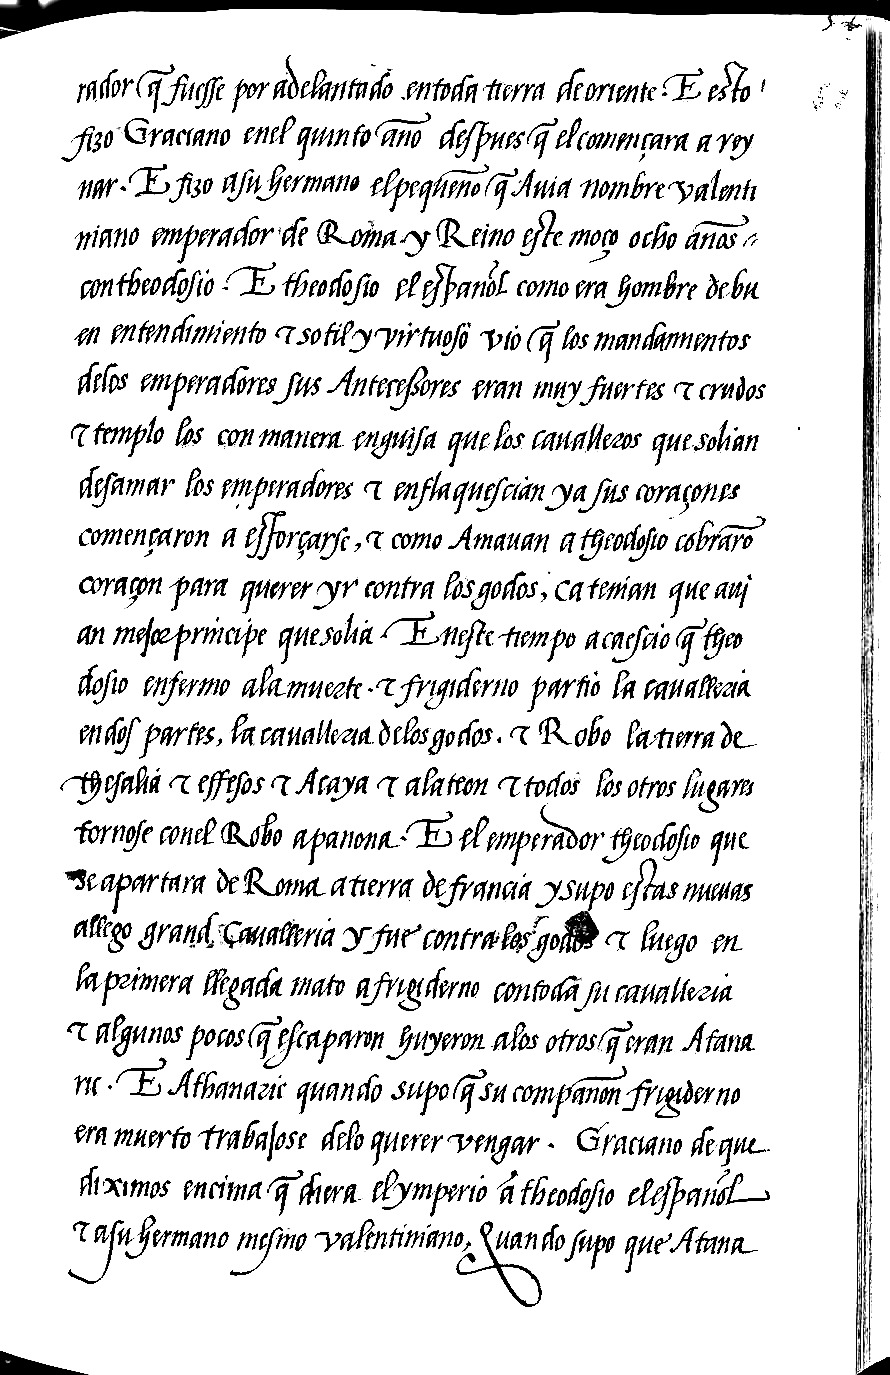 rador q̃ fuesse por adelantado en toda tierra de oriente. E esto
fizo Graciano enel quinto año despues q̃ el començara a rey
nar. E fizo asu hermano el pequeño q̃ Auia nombre valenti
niano emperador de Roma y Reino este moço ocho años
con theodosio. E theodosio el español como era hombre de bu
en entendimiento τ sotil y virtuoso vio q̃ los mandamientos
delos emperadores sus Antecessores eran muy fuertes τ crudos
τ templo los con manera enguisa que los caualleros que solian
desamar los emperadores τ enflaquescian ya sus coraçones
començaron a esforçarse, τ como Amauan a theodosio cobrarõ
coraçon para querer yr contra los godos, ca tenian que aui
an mejor principe que solia. E neste tiempo acaescio q̃ theo
dosio enfermo ala muerte. τ frigiderno partio la caualleria
en dos partes, la caualleria delos godos. τ Robo la tierra de
thesalia τ effesos τ Acaya τ alateon τ todos los otros lugares
tornose conel Robo a panona. E el emperador theodosio que
se apartara de Roma a tierra de francia y supo estas nueuas
allego grand Caualleria y fue contra los godos τ luego en
la primera llegada mato a frigiderno con toda su caualleria
τ algunos pocos q̃ escaparon huyeron alos otros q̃ eran Atana
ric. E Athanaric quando supo q̃ su compañon frigiderno
era muerto trabajose delo querer vengar. Graciano de que
diximos encima q̃ diera el ymperio ã theodosio el español
τ asu hermano mesmo valentiniano, Quando supo que Atana